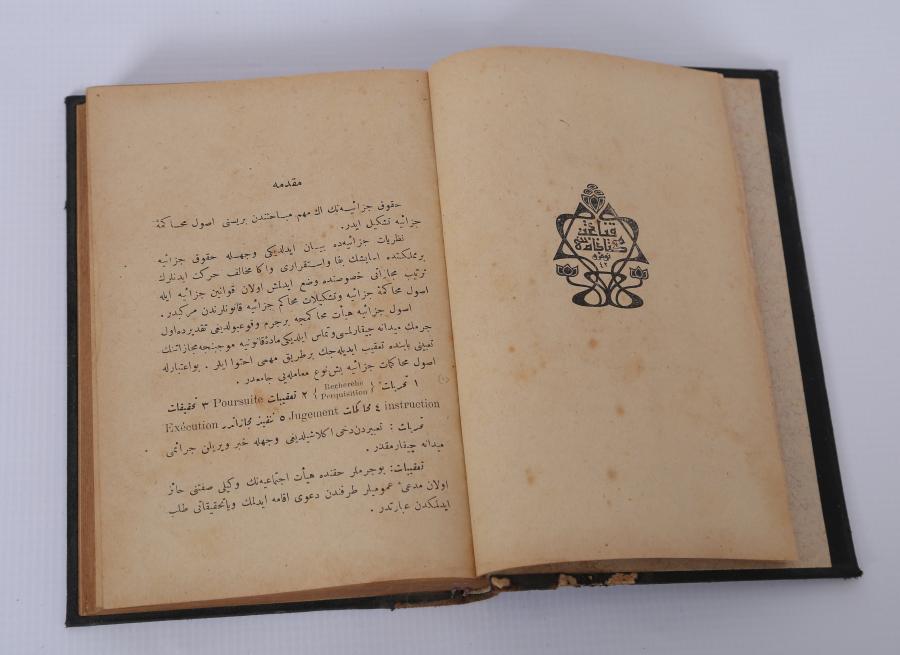 قناعت
كتابخانه سی
مقدمه
حقوق جزائیه‌نك اك مهم مباحثندن بریسنی اصول محاكمهٔ
جزائیه تشكیل ایدر.
نظریات جزائیه‌ده بیان ایدلدیكی وجهله حقوق جزائیه
برمملكتده آسایشك بقا واستقراری واكا مخالف حركت ایدنلرك
ترتیب مجازاتی خصوصنده وضع ایدلمش اولان قوانین جزائیه ایله
اصول محاكمهٔ جزائیه وتشكیلات محاكم جزائیه قانونلرندن مركبدر.
اصول جزائیه هیأت محاكمجه برجرم وقوعبولدیغی تقدیرده اول
جرمك میدانه چیقارلمسی وتماس ایلدیكی مادهٔ قانونیه موجبنجه مجازاتنك
تعیینی بابنده تعقیب ایدیله‌جك برطریق مهمی احتوا ایلر. بواعتبارله
اصول محاكمات جزائیه بش نوع معامله‌یی جامعدر.
١ تحریات { Recherche Perquisition } ٢ تعقیبات Poursuite ٣ تحقیقات
instruction ٤ محاكمات Jugement ٥ تنفیذ مجازاتدر Exécution
تحریات : تعبیردن دخی اكلاشیلدیغی وجهله خبر ویریلن جرائمی
میدانه چیقارمقدر.
تعقیبات: بوجرملر حقنده هیأت اجتماعیه‌نك وكیلی صفتنی حائز
اولان مدعیٔ عمومیلر طرفندن دعوی اقامه ایدلمك ویاتحقیقاتی طلب
ایدلمكدن عبارتدر.